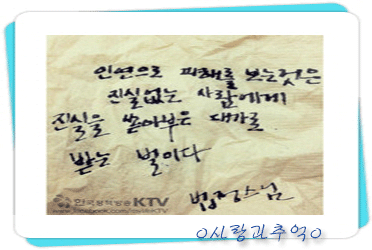 인연으로 피해를 보는것은
진실없는 사람에게
진실을 쏟아부은 대가로
받는 벌이다
법정스님
한국정책방송 KTV
www.facebook.com/loveKTV
o사랑과추억o